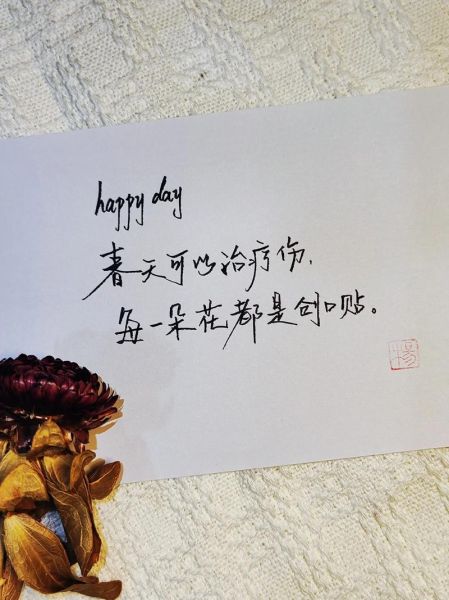 happy day
春天可以治疗伤,
每一朵花都是创口贴。